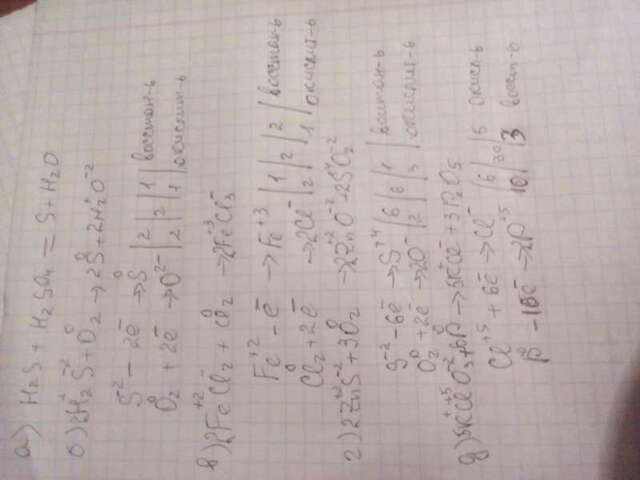 а) H₂S + H₂SO₄ = S + H₂O
б) 2H₂⁺S⁻² + O₂⁰ → 2S⁰ + 2H₂⁺O⁻²
S²⁻ - 2ē → S⁰ | 2 | 2 | 1 | восстан-ь
O₂⁰ + 2ē → O²⁻ | 2 | 2 | 1 | окислит-ь
в) 2Fe⁺²Cl₂⁻ + Cl₂⁰ → 2Fe⁺³Cl₃⁻
Fe⁺² - ē → Fe⁺³ | 1 | 2 | 2 | восстан-ь
Cl₂⁰ + 2ē → 2Cl⁻ | 2 | 2 | 1 | окислит-ь
г) 2Zn⁺²S⁻² + 3O₂⁰ → 2Zn⁺²O⁻² + 2S⁺⁴O₂⁻²
S⁻² - 6ē → S⁺⁴ | 6 | 6 | 1 | восстан-ь
O₂⁰ + 2ē → 2O⁻ | 2 | 6 | 3 | окислит-ь
д) 5K⁺Cl⁺⁵O₃⁻² + 6P⁰ → 5K⁺Cl⁻ + 3P₂O₅
Cl⁺⁵ + 6ē → Cl⁻ | 6 | 30 | 5 окисл-ь
P⁰ - 10ē → 2P⁺⁵ | 10 | 3 восст-ь